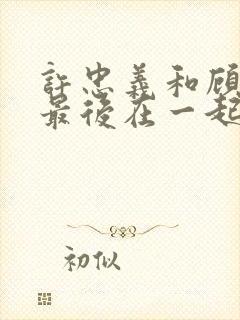 許忠義和顾
最後在一起
初似